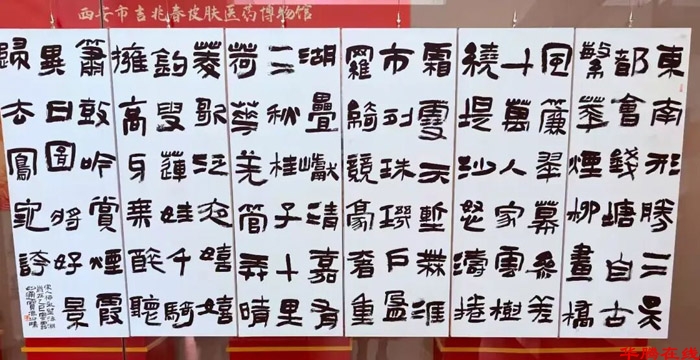 西安市吉兆春皮肤医药博物馆
東南形勝三吳
都會錢塘自古
繁華煙柳畫橋
風簾翠幕參差
十萬人家雲樹
繞堤沙怒濤捲
霜雪天塹無涯
市列珠璣戶盈
羅綺競豪奢重
湖疊巘清嘉有
三秋桂子十里
荷華羌管弄晴
菱歌泛夜嬉嬉
釣叟蓮娃千騎
擁高牙乘醉聽
簫鼓吟賞煙霞
異日圖將好景
歸去鳳池誇